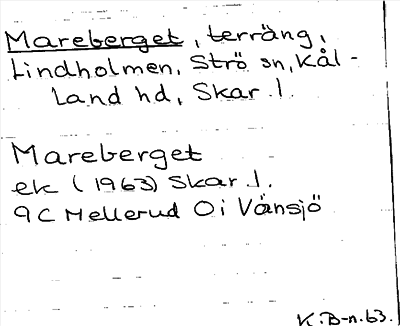 Mareberget, terräng,
Lindholmen, Strö sn, Kål-
Land hd, Skar.l.
Mareberget
ek (1963) Skar.l.
9C Mellerud 0i Vänsjö
K.B-n.63.